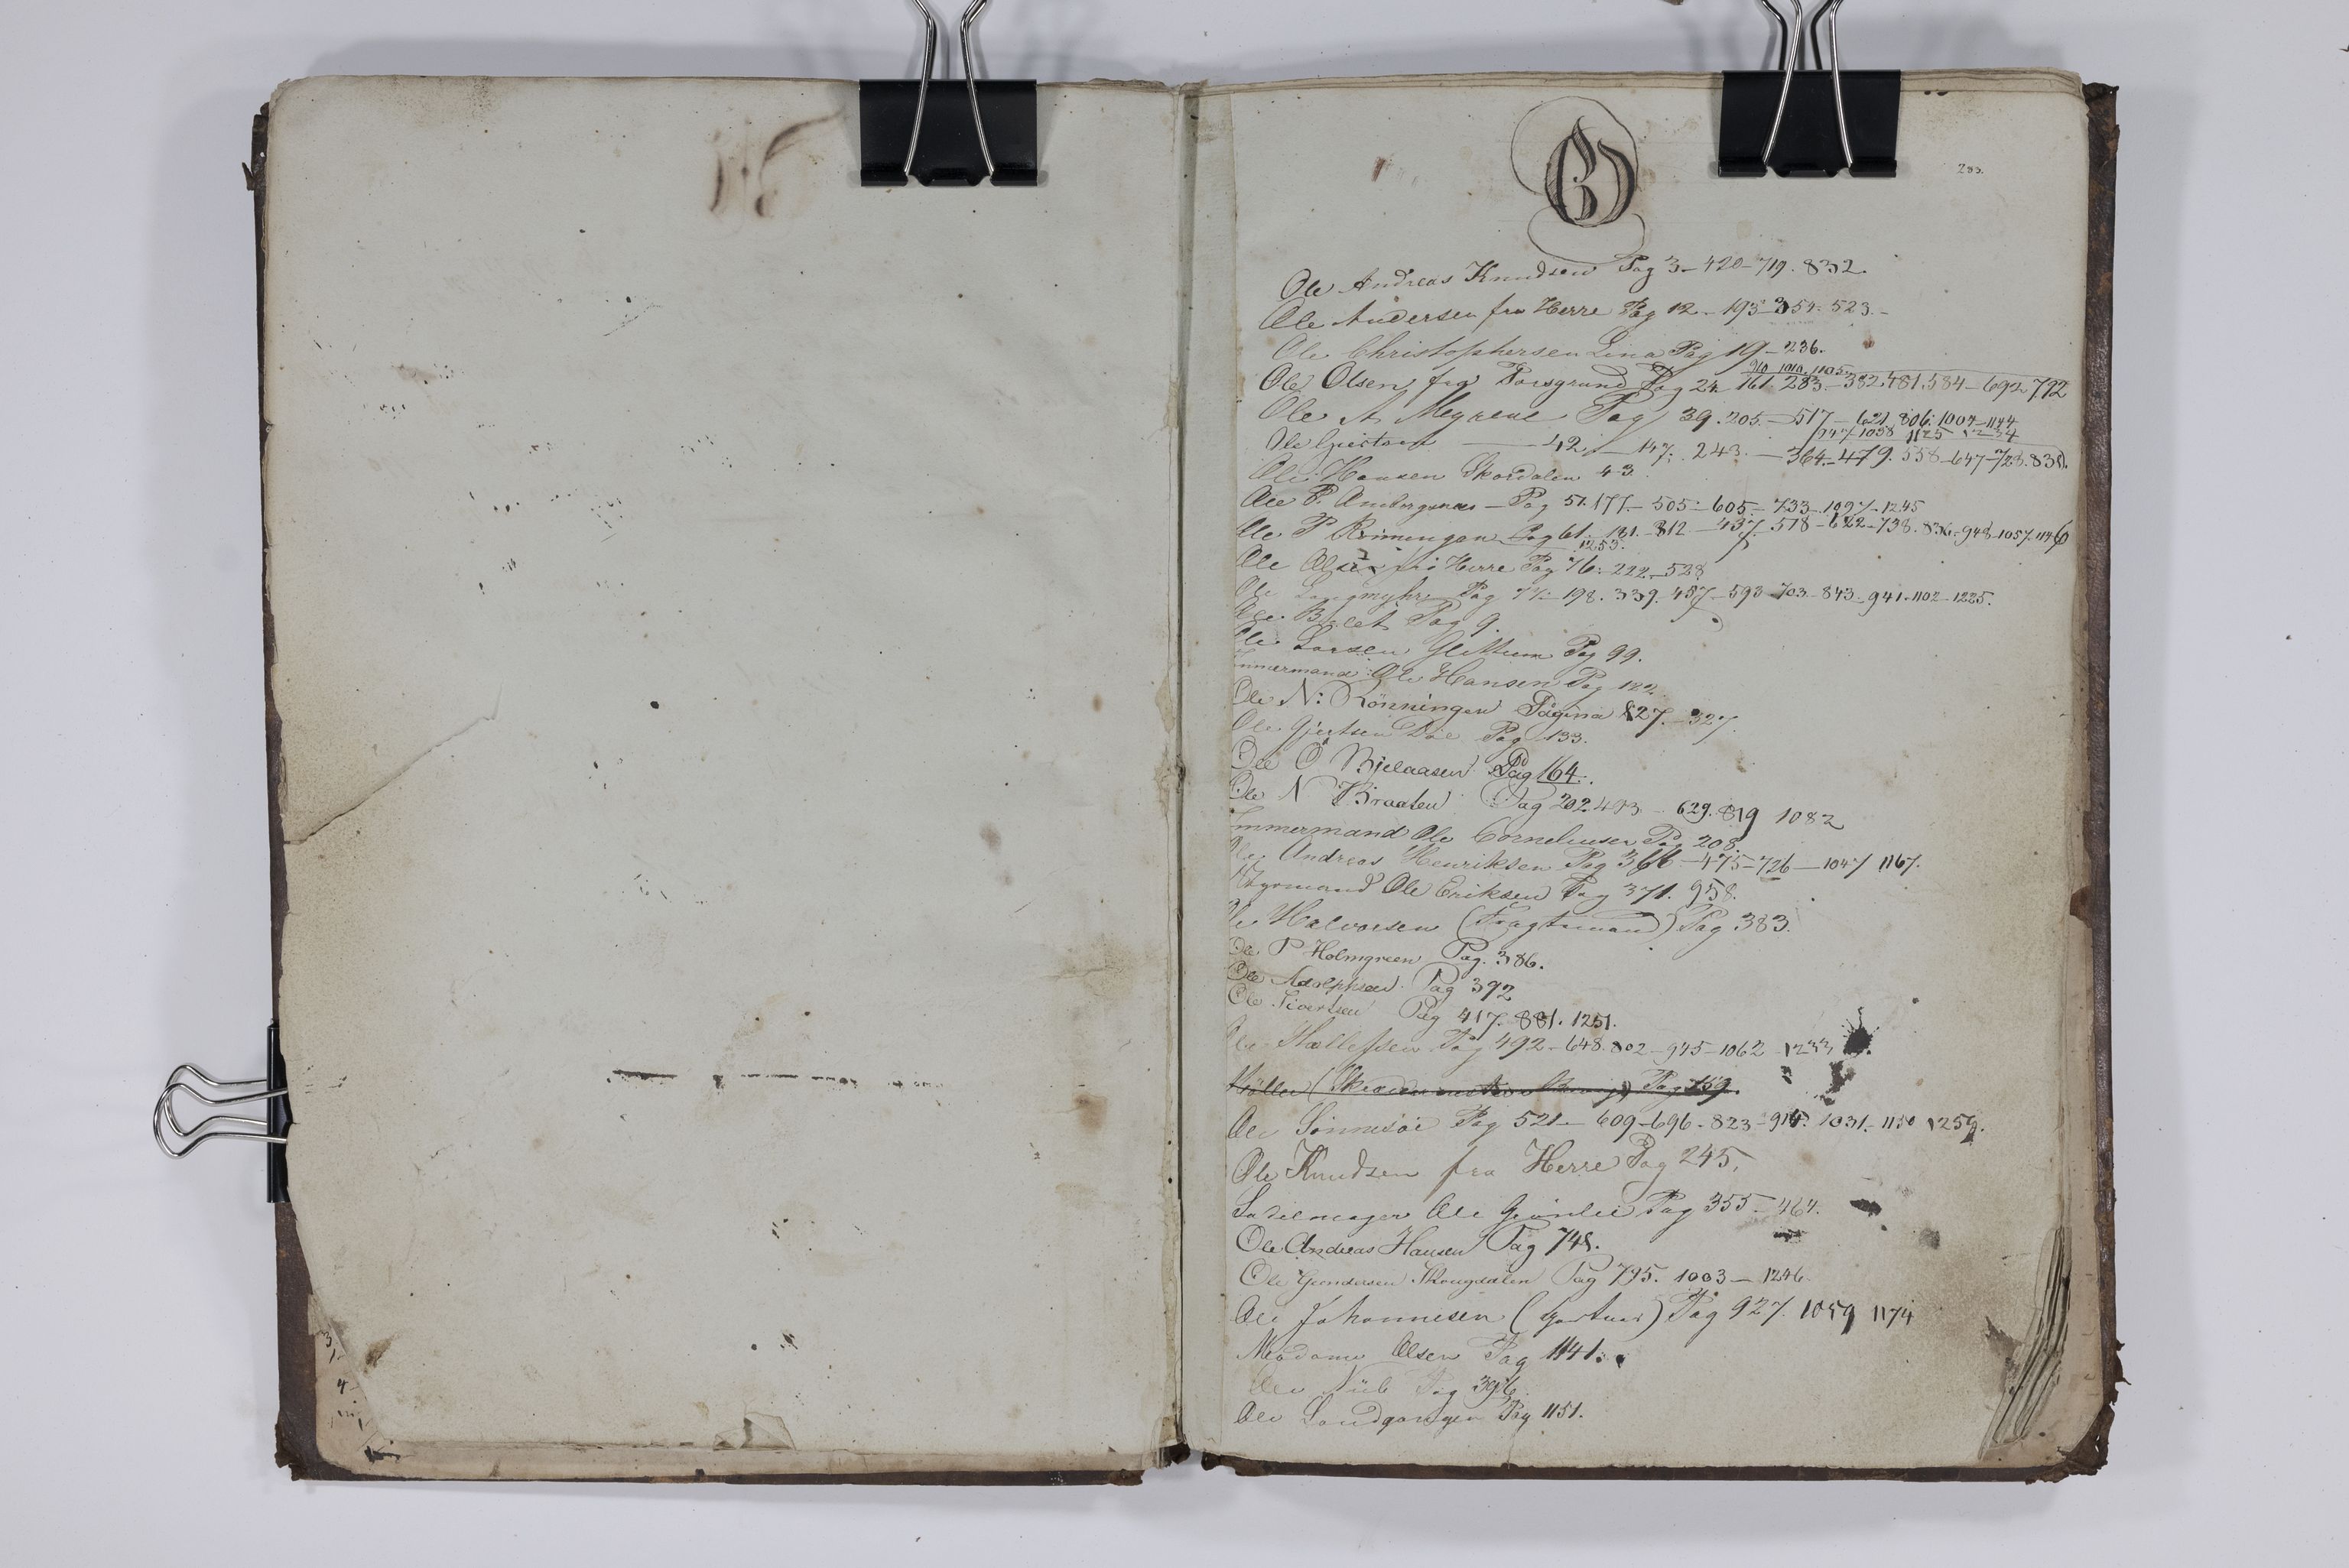 O
Ole Andreas Knudsen Pag 3 - 420 - 719. 832.
Ole Andersen fra Herre Pag 12 - 193 - 354 - 523 -
Ole Christophersen Lina Pag 19 - 236.
910 1010 1105
Ole Olsen fra Porsgrund Pag 24 161. 283. - 382. 481. 584 - 692. 792
Ole A Myrene Pag 39. 205. - 517 - 621. 806. 1004 - 1144
1058 1125 1234
Ole Gjertsen - 42 - 147. 243. - 364. - 479. 558 - 647 - 728. 838.
Ole Hansen Skordalen 43.
Ole P. Pag 51. 177. - 505 - 605 - 733 - 1097 - 1245
Ole P Pag 61. 181. - 312. - 437. 578 - 622 - 738. 836 - 948 - 1057. 1146
1253.
Ole Olsen fra Herre Pag 76. - 222. - 528
Ole Langmyhr Pag 77. - 198. 339. 457 - 593 - 703 - 843 - 941 - 1102 - 1225.
Ole Pag 9.
Ole Larsen Glittum Pag 99.
Ole Hansen Pag 122.
Ole N: Rönningen Pagina 127. - 327.
Ole Gjertsen Pag 133.
Ole O Bjelaasen Pag 164.
Ole N Braaten Pag 202. 493 - 629. 819 1082
mmermand Ole Corneliusen Pag 208.
Ole Andreas Henriksen Pag 366 - 475 - 726 - 1047 1167.
Styrmand Ole Eriksen Pag 371. 958.
Ole Halvorsen (Fragtmand) Pag 383.
Ole P Holmgreen Pag. 386.
Ole Adolphsen Pag 392
Ole Sivertsen Pag 417. 881. 1251.
Ole Pag 492 - 648. 802 - 945 - 1062 - 1233
Möller Pag 159.
Ole Pag 521 - 609 - 696 - 823 - 914. 1031 - 1150 1259.
Ole Knudsen fra Herre Pag 245.
Sadelmager Ole Pag 355 - 464.
Ole Andreas Hansen Pag 748.
Ole Gundersen Skougdalen Pag 795. 1003 - 1246
Ole Johannesen (Gartner) Pag 927. 1059 1174
Madame Olsen Pag 1141.
Ole Pag 396.
Ole Sandgangen Pag 1151.